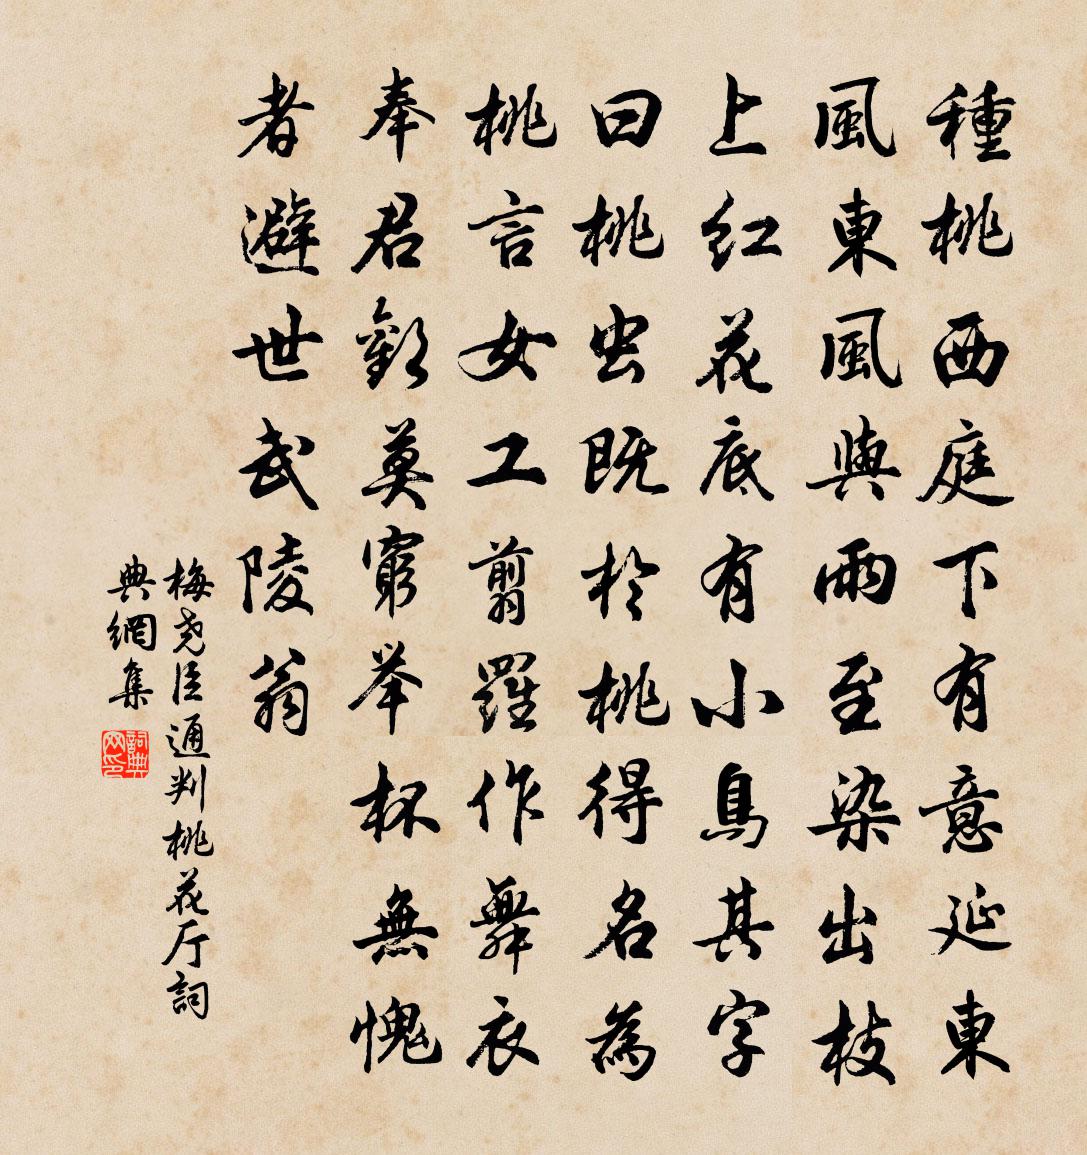 種桃西庭下有意延東
風東風與雨至染出枝
上红花底有小鳥其字
曰桃虫既於桃得名為
桃言女工翦羅作舞衣
奉君歡莫窮举杯無愧
者避世武陵翁
梅尧臣通判桃花厅詞
典網集
詞典网印